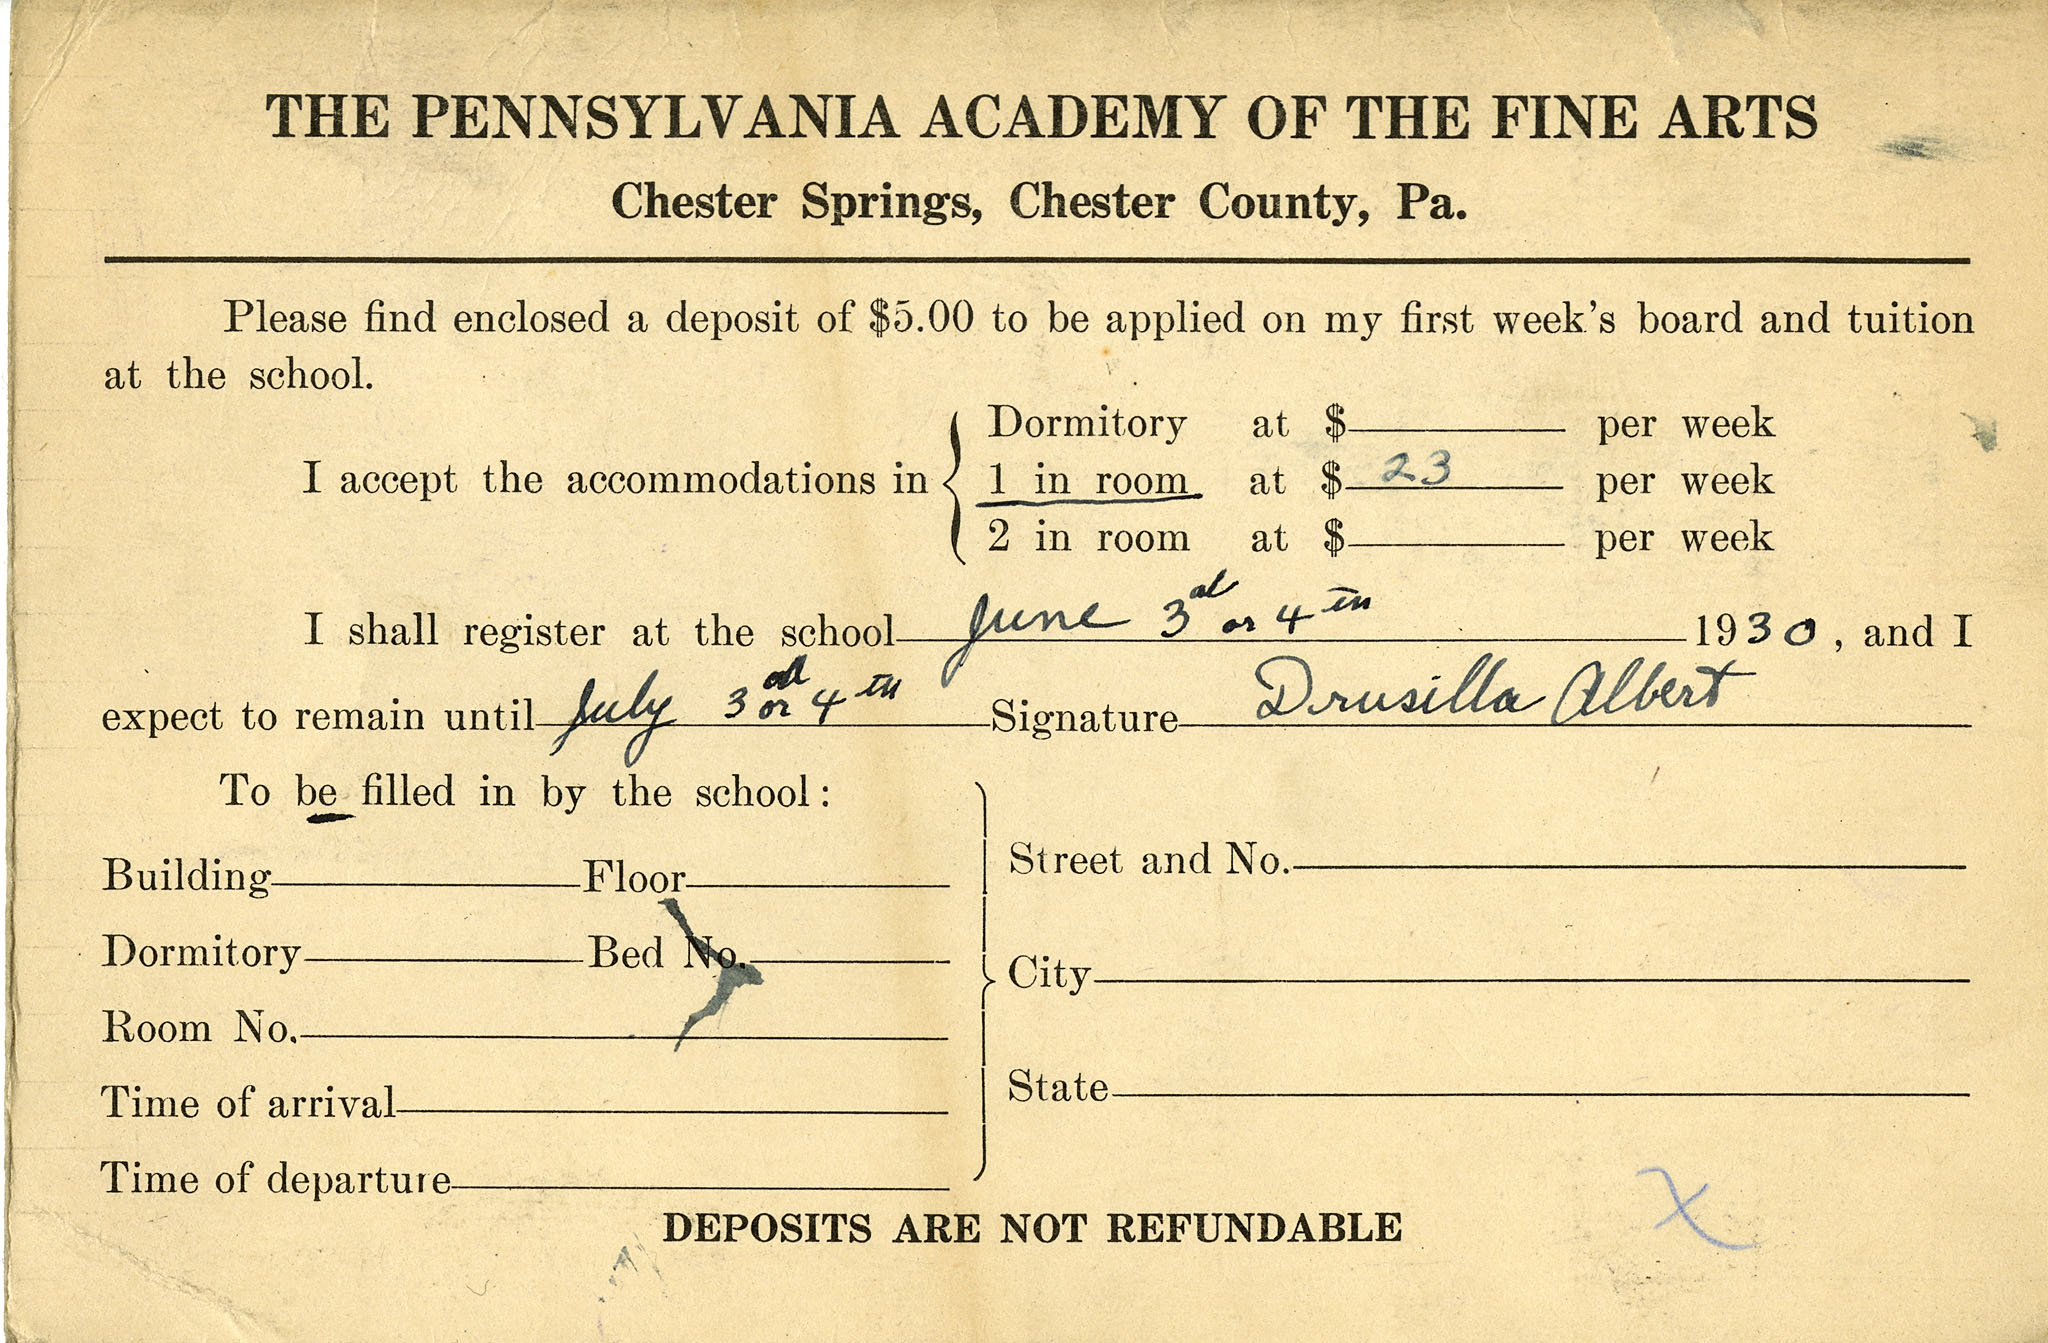 THE PENNSYLVANIA ACADEMY OF THE FINE ARTS
Chester Springs, Chester County, Pa.
Please find enclosed a deposit of $5.00 to be applied on my first week's board and tuition
at the school.
Dormitory at $ per week
I accept the accommodations in 1 in room at $ 23 per week
2 in room at $ per week
I shall register at the school June 3rd or 4th 1930, and I
expect to remain until July 3rd or 4th Signature Drusilla Albert
To be filled in by the school:
Building Floor
Dormitory Bed No.
Room No.
Time of arrival
Time of departure
Street and No.
City
State
X
DEPOSITS ARE NOT REFUNDABLE